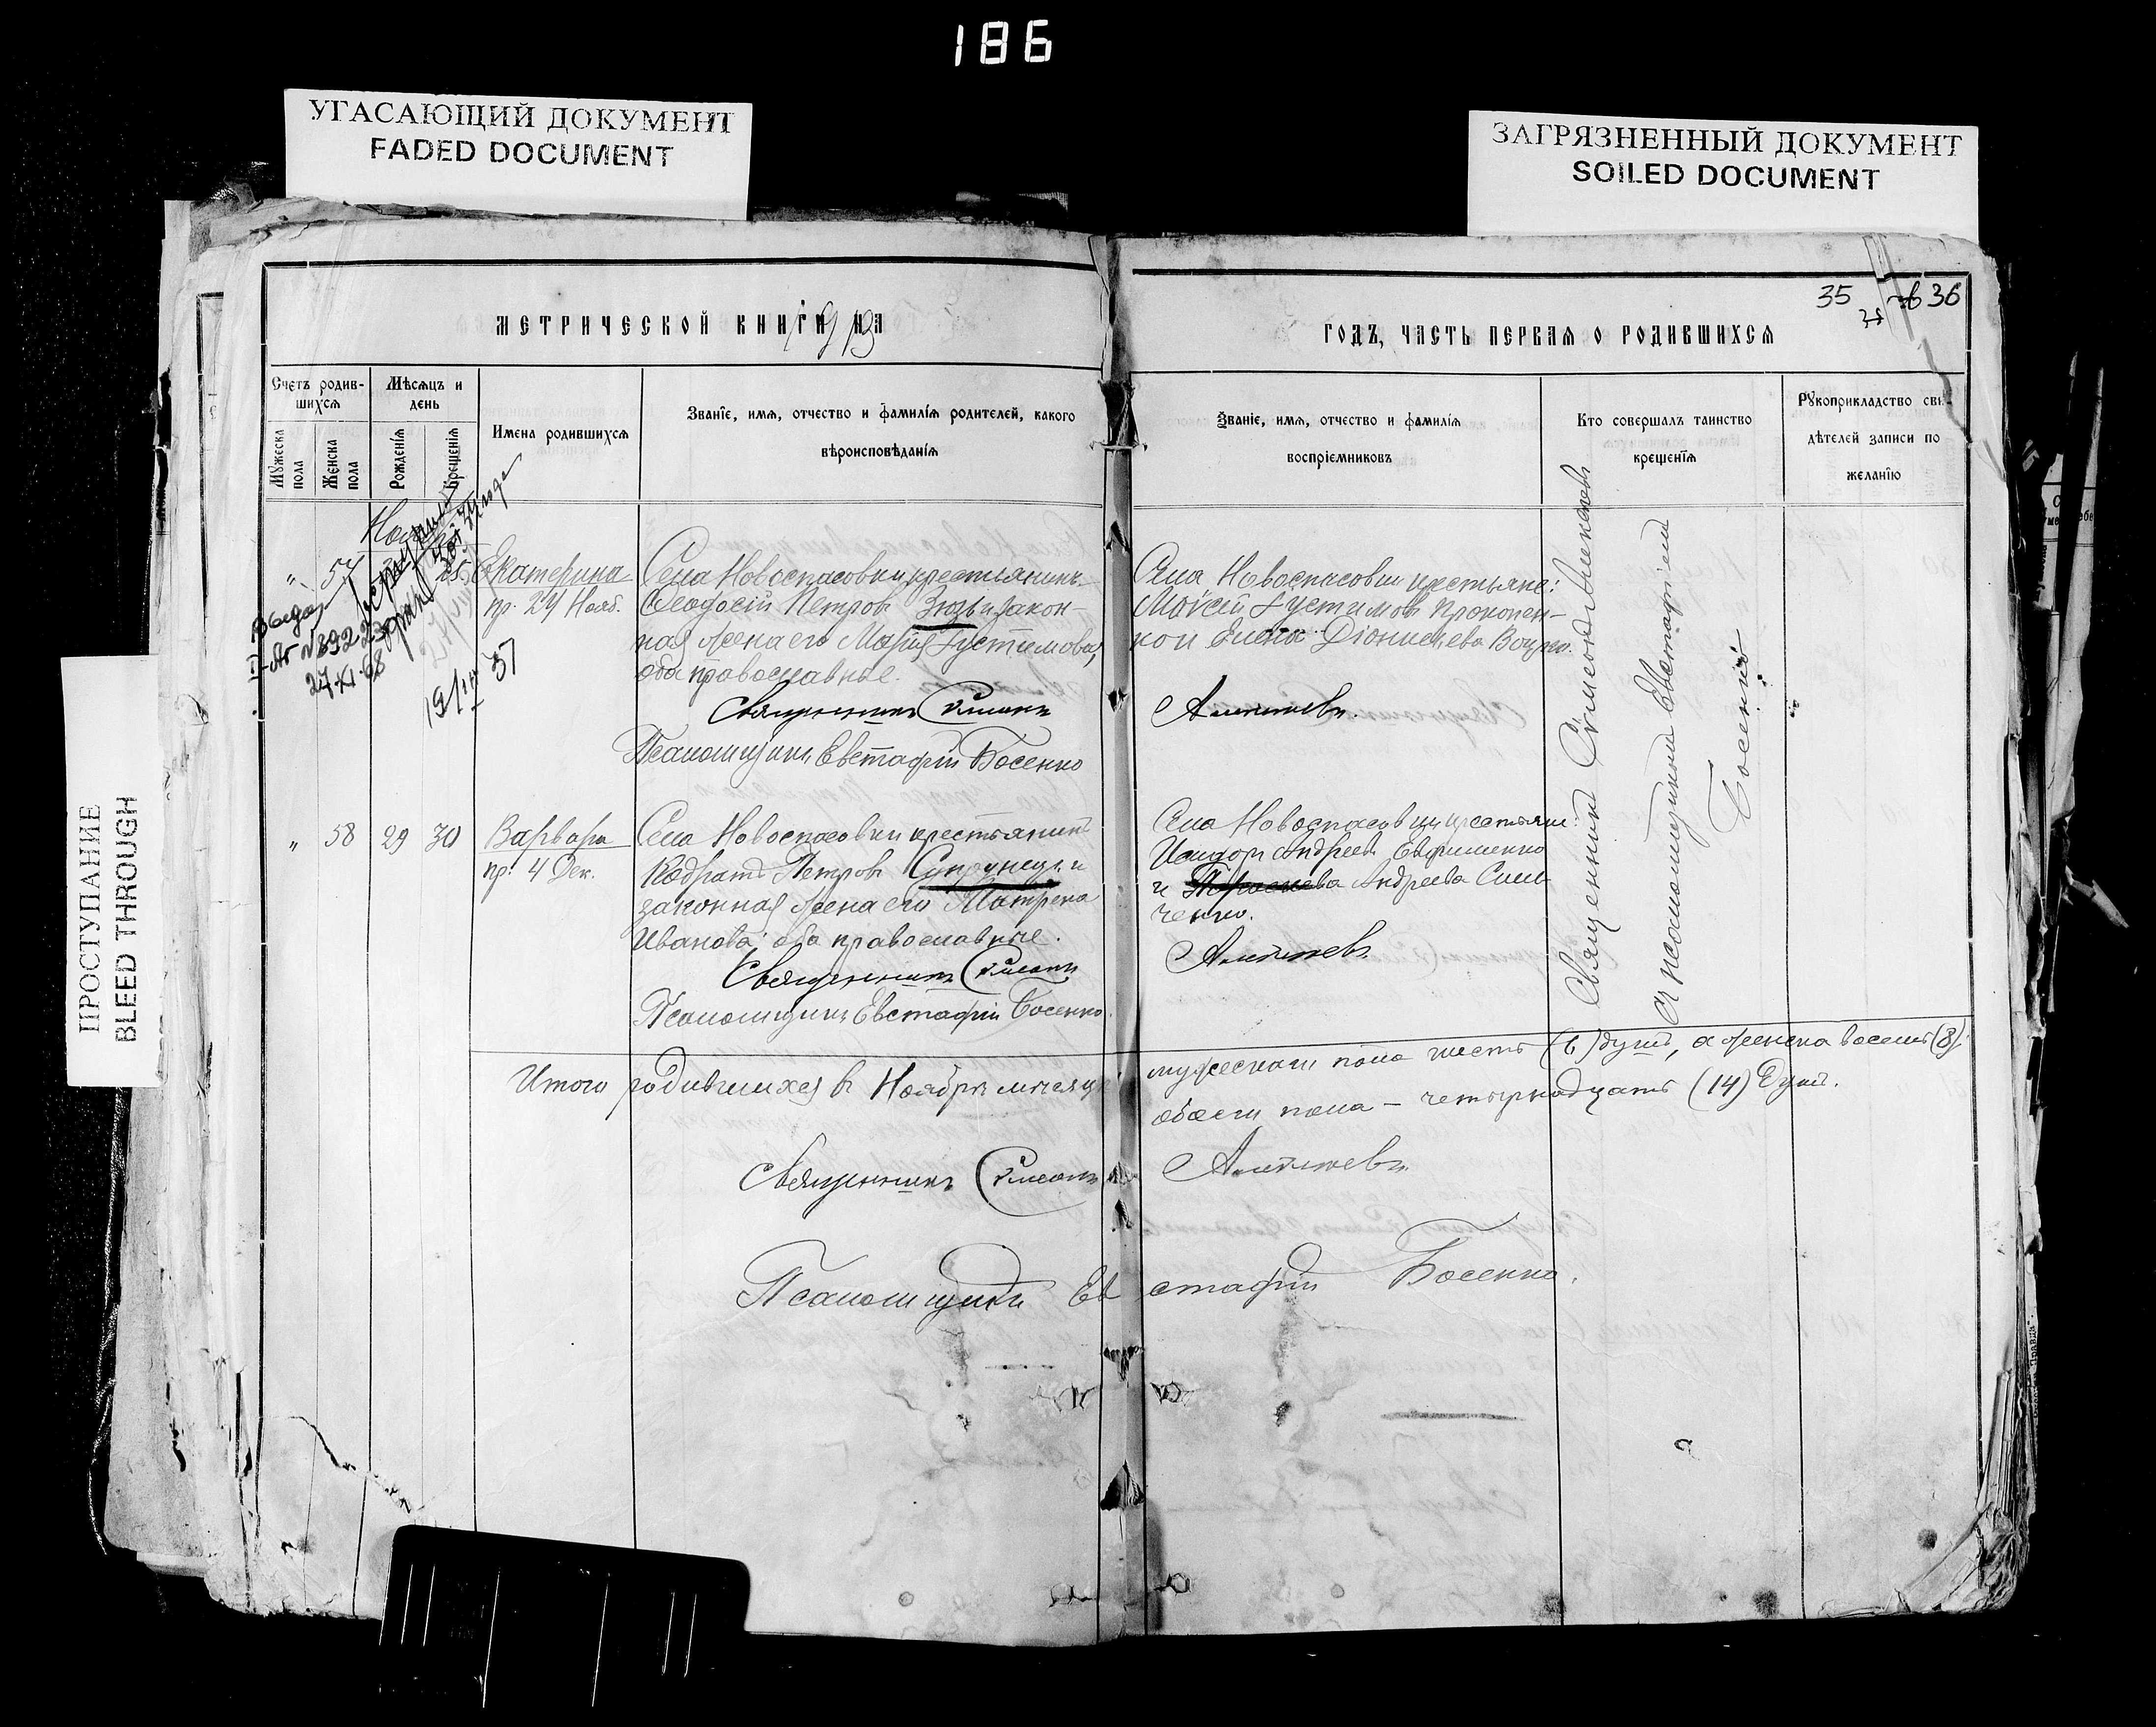 186
УГАСАЮЩИЙ ДОКУМЕНТ
FADED DOCUMENT
ЗАГРЯЗНЕННЫЙ ДОКУМЕНТ
SOILED DOCUMENT
ПРОСТУПАНИЕ
BLEED THROUGH
МЕТРИЧЕСКОЙ КНИГИ НА 1913
ГОДЪ, ЧАСТЬ ПЕРВАЯ О РОДИВШИХСЯ
35
36
Счетъ родив-
шихся
Мужеска
пола
Женска
пола
Мѣсяцъ и
день
Рожденія
Крещенія
Имена родившихся
Званіе, имя, отчество и фамилія родителей, какого
вѣроисповѣданія
Званіе, имя, отчество и фамилія
воспріемниковъ
Кто совершалъ таинство
крещенія
Рукоприкладство сви-
дѣтелей записи по
желанію
" 57
25
Екатерина
пр. 24 Нояб.
№ 892
27.XI.68
37
Села Новоспасовки крестьянинъ
Ѳеодосій Петровъ Зюзь и закон-
ная жена его Марія Іустимова,
оба православные.
Священникъ Симеонъ
Псаломщикъ Евстафій Босенко
Села Новоспасовки крестьяне:
Моѵсей Іустимовъ Прокопен-
ко и Елена Діонисіева
" 58 29 30
Варвара
пр. 4 Дек.
Села Новоспасовки крестьянинъ
Кодратъ Петровъ Супрунецъ и
законная жена его Матрена
Иванова оба православные.
Священникъ Симеонъ
Псаломщикъ Евстафій Босенко.
Села Новоспасовки крестьяне:
Исидоръ Андреевъ Ефименко
и Андреева
ченко.
Священникъ Симеонъ
съ псаломщикомъ Евстафіемъ
Босенко
Итого родившихся въ Ноябрѣ мѣсяцѣ
мужескаго пола шесть (6) душъ, а женска восемь (8).
обоего пола — четырнадцать (14) душъ.
Священникъ Симеонъ
Псаломщикъ Евстафій Босенко.